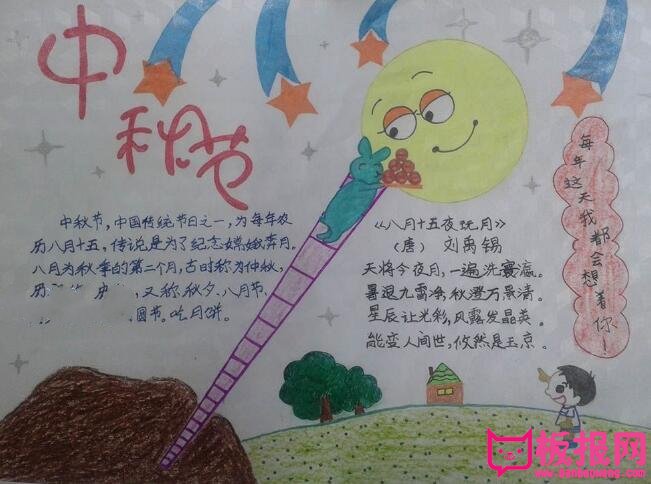 中秋节
中秋节，中国传统节日之一，为每年农
历八月十五，传说是为了纪念嫦娥奔月。
八月为秋季的第二个月，古时称为仲秋，
又称秋夕、八月节、
圆节。吃月饼。
《八月十五夜玩月》
（唐） 刘禹锡
天将今夜月，一遍洗寰瀛。
暑退九霄净，秋澄万景清。
星辰让光彩，风露发晶英。
能变人间世，攸然是玉京。
每年这天我都会想着你！
板报网